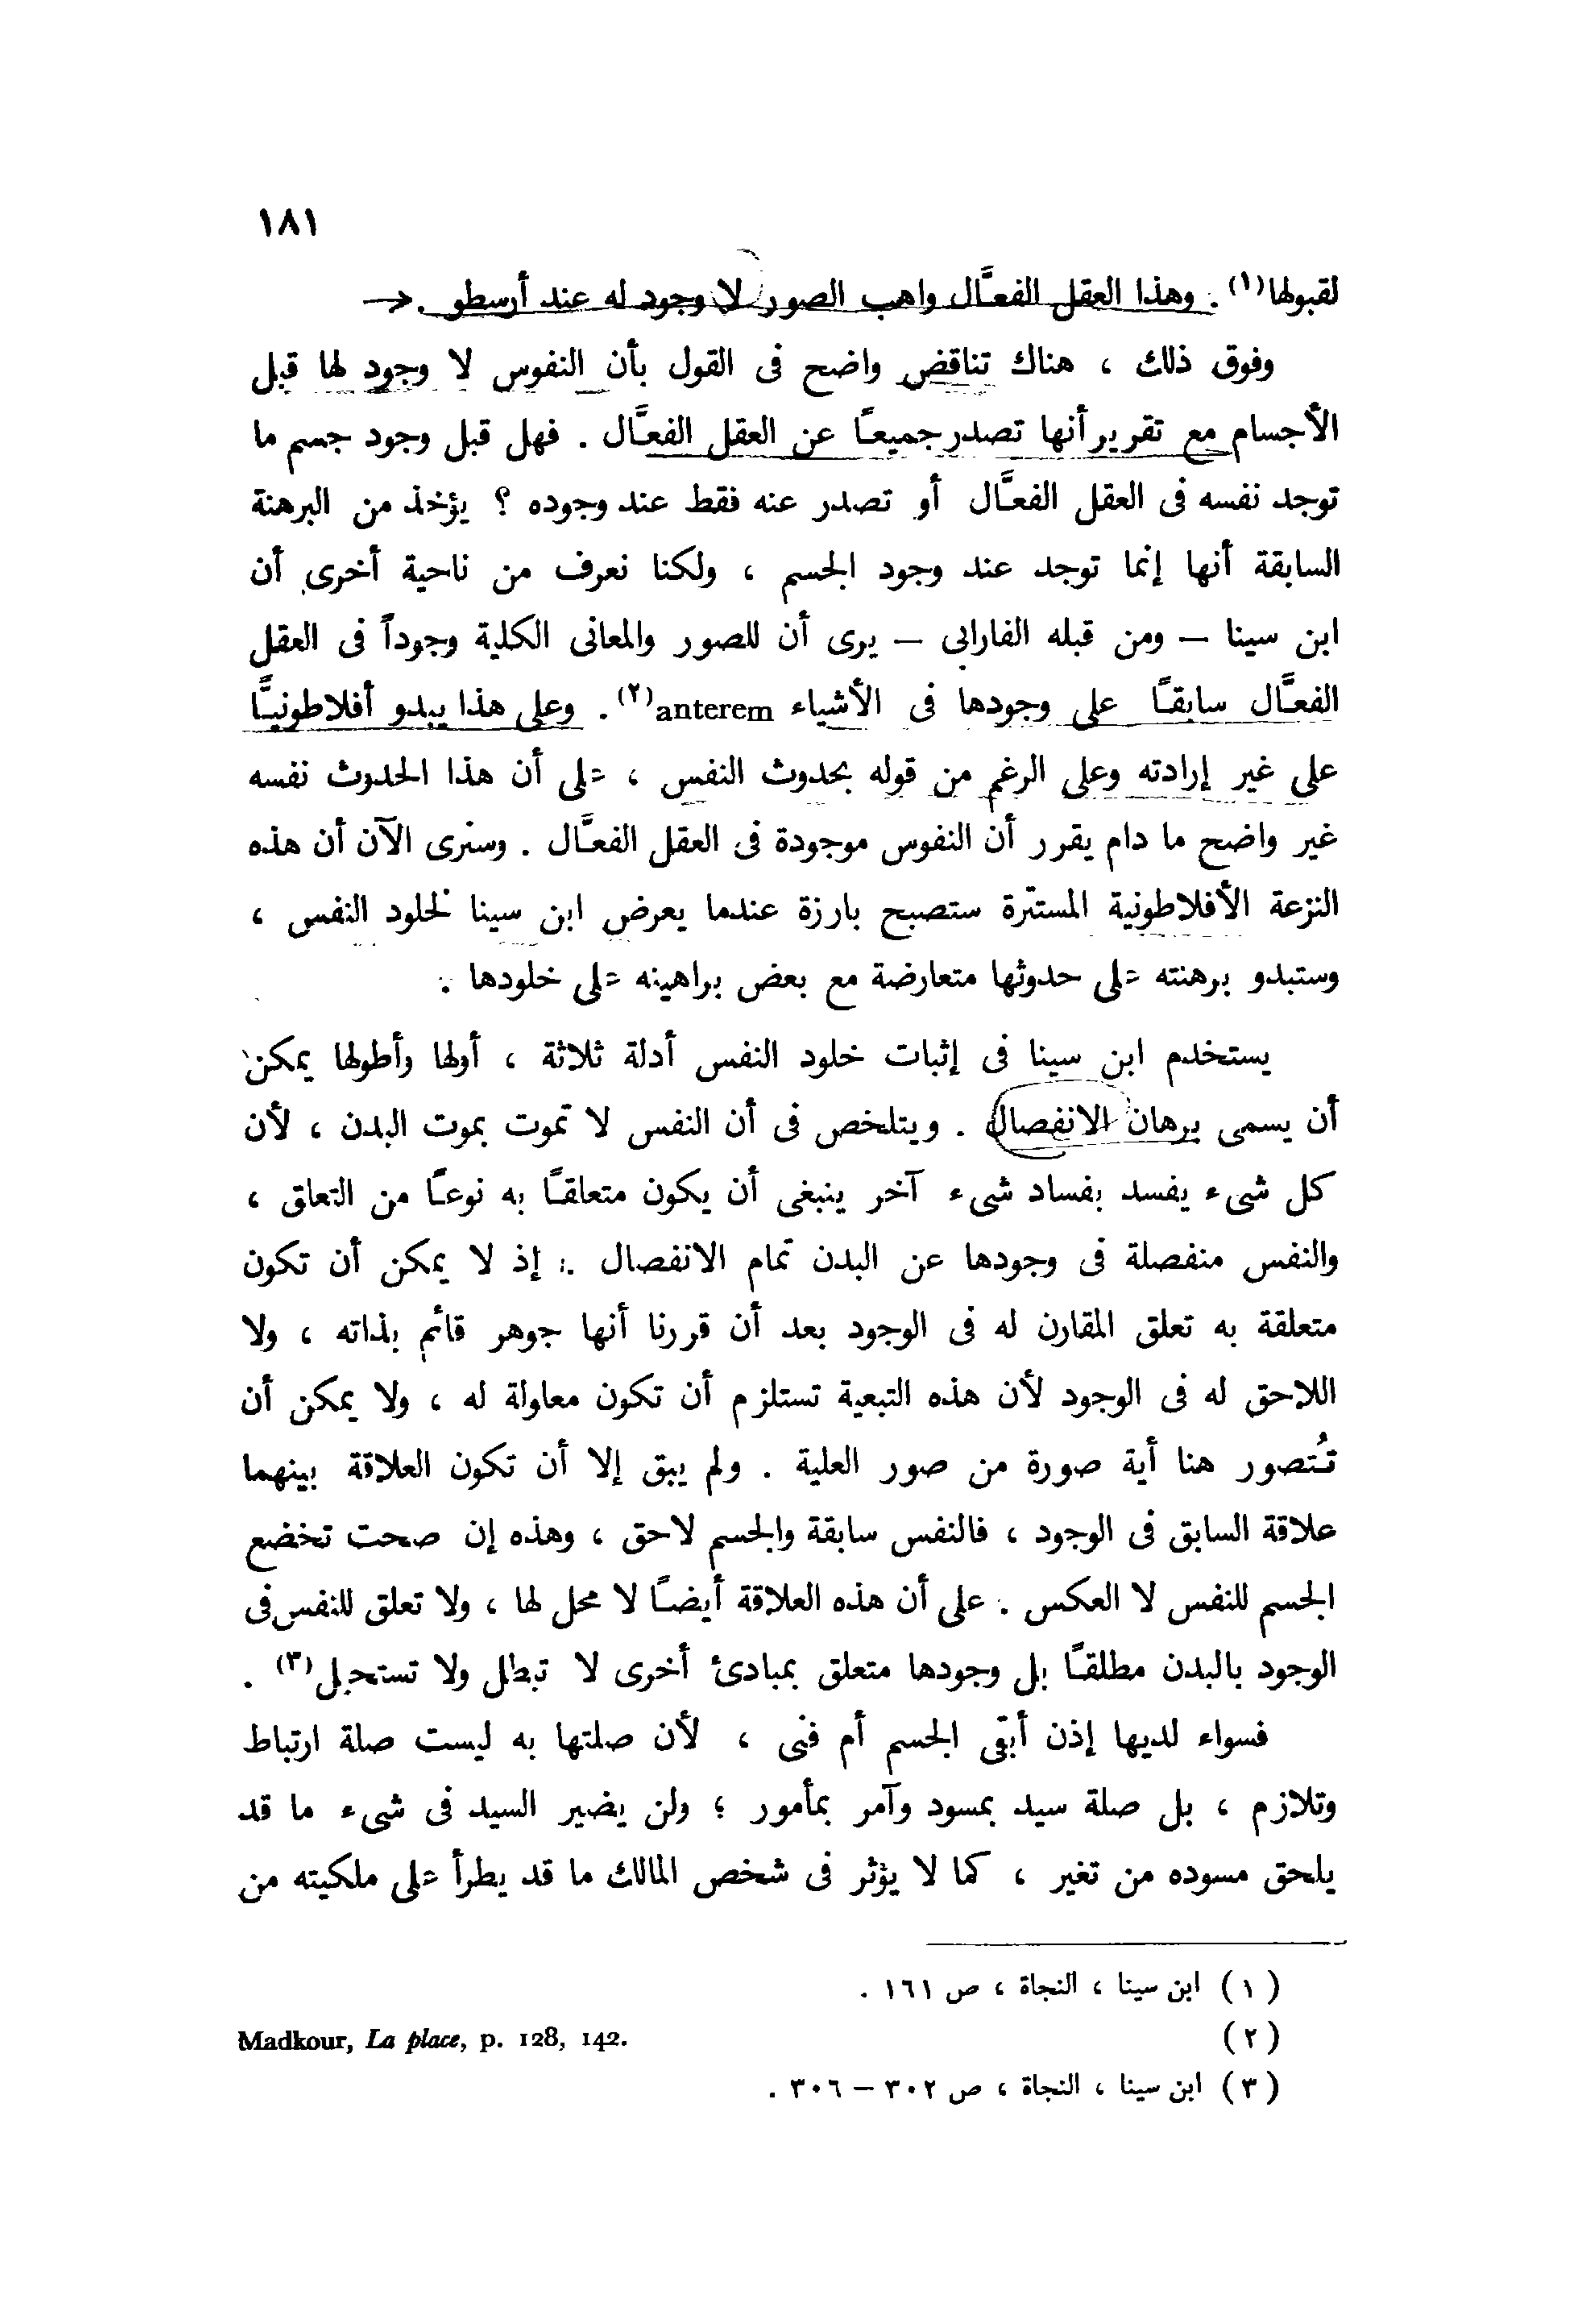 ١٨١
لقبولها(١) . وهذا العقل الفعَّال واهب الصور لا وجود له عند أرسطو .
وفوق ذلك ، هناك تناقض واضح فى القول بأن النفوس لا وجود لها قبل
الأجسام مع تقرير أنها تصدر جميعًا عن العقل الفعَّال . فهل قبل وجود جسم ما
توجد نفسه فى العقل الفعَّال أو تصدر عنه فقط عند وجوده ؟ يؤخذ من البرهنة
السابقة أنها إنما توجد عند وجود الجسم ، ولكنا نعرف من ناحية أخرى أن
ابن سينا – ومن قبله الفارابى – يرى أن للصور والمعانى الكلية وجوداً فى العقل
الفعَّال سابقًا على وجودها فى الأشياء anterem(٢) . وعلى هذا يبدو أفلاطونيًّا
على غير إرادته وعلى الرغم من قوله بحدوث النفس ، على أن هذا الحدوث نفسه
غير واضح ما دام يقرر أن النفوس موجودة فى العقل الفعَّال . وسنرى الآن أن هذه
النزعة الأفلاطونية المستترة ستصبح بارزة عندما يعرض ابن سينا لخلود النفس ،
وستبدو برهنته على حدوثها متعارضة مع بعض براهينه على خلودها .
يستخدم ابن سينا فى إثبات خلود النفس أدلة ثلاثة ، أولها وأطولها يمكن
أن يسمى برهان الانفصال . ويتلخص فى أن النفس لا تموت بموت البدن ، لأن
كل شىء يفسد بفساد شىء آخر ينبغى أن يكون متعلقًا به نوعًا من التعلق ،
والنفس منفصلة فى وجودها عن البدن تمام الانفصال . إذ لا يمكن أن تكون
متعلقة به تعلق المقارن له فى الوجود بعد أن قررنا أنها جوهر قائم بذاته ، ولا
اللاحق له فى الوجود لأن هذه التبعية تستلزم أن تكون معلولة له ، ولا يمكن أن
تُتصور هنا أية صورة من صور العلية . ولم يبق إلا أن تكون العلاقة بينهما
علاقة السابق فى الوجود ، فالنفس سابقة والجسم لاحق ، وهذه إن صحت تخضع
الجسم للنفس لا العكس . على أن هذه العلاقة أيضًا لا محل لها ، ولا تعلق للنفس فى
الوجود بالبدن مطلقًا بل وجودها متعلق بمبادئ أخرى لا تبطل ولا تستحيل(٣) .
فسواء لديها إذن أبقى الجسم أم فنى ، لأن صلتها به ليست صلة ارتباط
وتلازم ، بل صلة سيد بمسود وآمر بمأمور ؛ ولن يضير السيد فى شىء ما قد
يلحق مسوده من تغير ، كما لا يؤثر فى شخص المالك ما قد يطرأ على ملكيته من
(١) ابن سينا ، النجاة ، ص ١٦١ .
(٢) Madkour, La place, p. 128, 142.
(٣) ابن سينا ، النجاة ، ص ٣٠٢ – ٣٠٦ .